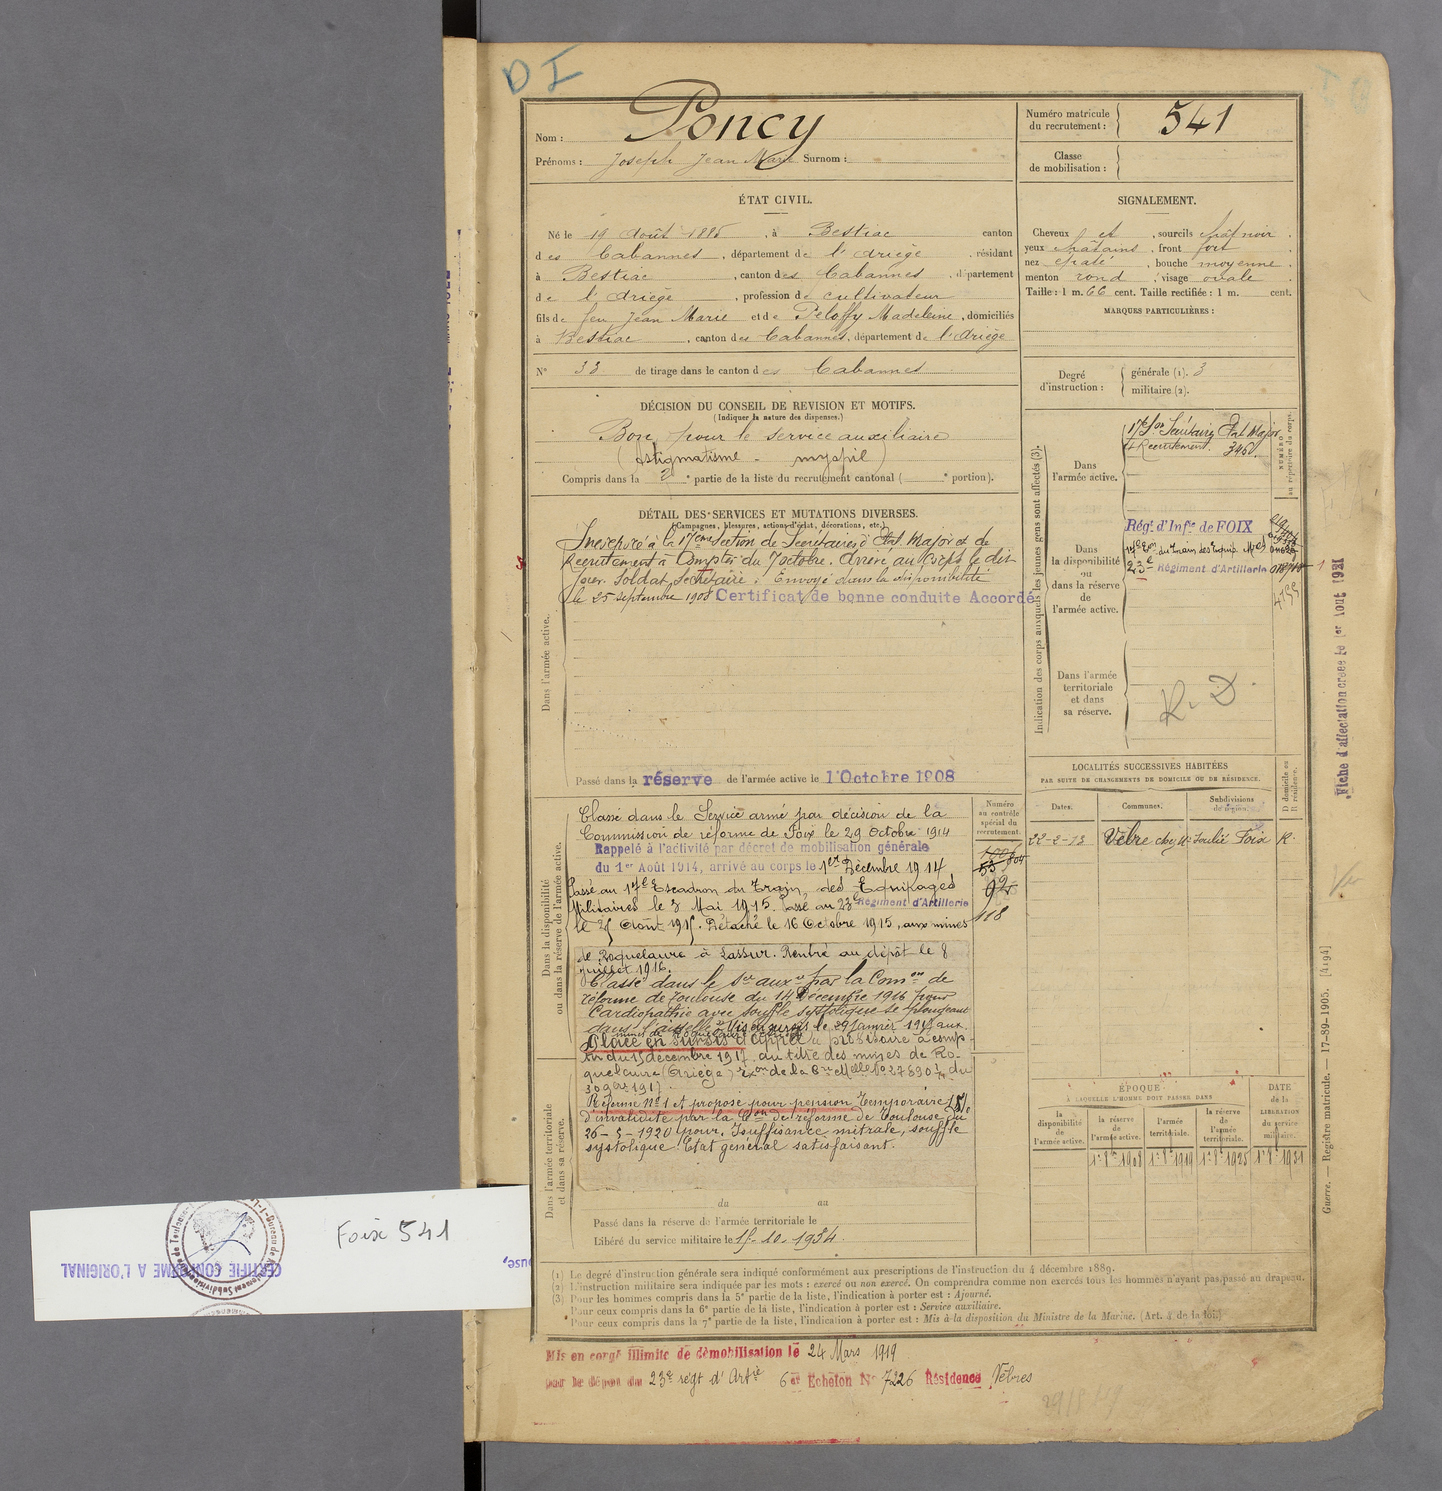 DI
Nom : Poncy
Prénoms : Joseph Jean Marie Surnom :
Numéro matricule du recrutement : 541
Classe de mobilisation :
ÉTAT CIVIL.
Né le 19 Août 1885, à Bestiac canton
des Cabannes, département de l'Ariège, résidant
à Bestiac, canton des Cabannes, département
de l'Ariège, profession de cultivateur
fils de feu Jean Marie et de Peloffy Madeleine, domiciliés
à Bestiac, canton des Cabannes, département de l'Ariège
N° 33 de tirage dans le canton des Cabannes
SIGNALEMENT.
Cheveux et, sourcils chât noir.
yeux chatains, front fort.
nez épaté, bouche moyenne.
menton rond, visage ovale.
Taille : 1 m. 66 cent. Taille rectifiée : 1 m. cent.
MARQUES PARTICULIÈRES :
Degré d'instruction : générale (1). 3
militaire (2).
DÉCISION DU CONSEIL DE REVISION ET MOTIFS.
(Indiquer la nature des dispenses.)
Bon pour le service auxiliaire
(Astigmatisme - myopie)
Compris dans la 2e partie de la liste du recrutement cantonal ( e portion).
DÉTAIL DES SERVICES ET MUTATIONS DIVERSES.
(Campagnes, blessures, actions d'éclat, décorations, etc.)
Dans l'armée active.
Incorporé à la 17ème Section de Secrétaires d'Etat Major et de
Recrutement à Compter du 7 octobre. Arrivé au Corps le dit
jour. Soldat secrétaire. Envoyé dans la disponibilité
le 25 septembre 1908 Certificat de bonne conduite Accordé
Passé dans la réserve de l'armée active le 1 Octobre 1908
Indication des corps auxquels les jeunes gens sont affectés (3).
NUMÉRO au répertoire du corps.
Dans l'armée active.
17e Son Secrétaires Etat Major
et Recrutement. 3460
Dans la disponibilité ou dans la réserve de l'armée active.
Rég. d'Infie de FOIX
17e Eon du Train des Equip. Mres
23e Régiment d'Artillerie
Dans l'armée territoriale et dans sa réserve.
R. D.
Fiche d'affectation créée le 1er Aout 1931
LOCALITÉS SUCCESSIVES HABITÉES
PAR SUITE DE CHANGEMENTS DE DOMICILE OU DE RÉSIDENCE.
D domicile ou R résidence.
Dates. Communes. Subdivisions de région.
22-2-13 Vèbre chez Mr Soulié Foix R.
Dans la disponibilité ou dans la réserve de l'armée active.
Numéro au contrôle spécial du recrutement.
118
Classé dans le Service armé par décision de la
Commission de réforme de Foix le 29 octobre 1914
Rappelé à l'activité par décret de mobilisation générale
du 1er Août 1914, arrivé au corps le 1er Décembre 1914
Passé au 17e Escadron du Train des Equipages
Militaires le 3 Mai 1915. Passé au 23e Régiment d'Artillerie
le 25 Août 1915. Détaché le 16 Octobre 1915, aux mines
de Roquelaure à Lassur. Rentré au dépôt le 8
juillet 1916.
Classé dans le Sce auxre par la Comon de
réforme de Toulouse du 14 Décembre 1916 pour
Cardiopathie avec souffle systolique se propageant
dans l'aisselle. Mis en sursis le 29 Janvier 1917 aux
mines de Roquelaure
Placé en sursis d'appel à comp-
ter du 15 décembre 1917 au titre des mines de Ro-
quelaure (Ariège)
30 9bre 1917.
Réforme N° 1 et proposé pour pension Temporaire 15%
d'invalidité par la Con de réforme de Toulouse du
26-5-1920 pour. Insuffisance mitrale, souffle
systolique. Etat général satisfaisant.
Dans l'armée territoriale et dans sa réserve.
du au
Passé dans la réserve de l'armée territoriale le
Libéré du service militaire le 15-10-1934.
ÉPOQUE
À LAQUELLE L'HOMME DOIT PASSER DANS
DATE de la LIBÉRATION du service militaire.
la disponibilité de l'armée active. la réserve de l'armée active. l'armée territoriale. la réserve de l'armée territoriale.
1er 8bre 1908 1er 8bre 1919 1er 8bre 1925 1er 8bre 1931
(1) Le degré d'instruction générale sera indiqué conformément aux prescriptions de l'instruction du 4 décembre 1889.
(2) L'instruction militaire sera indiquée par les mots : exercé ou non exercé. On comprendra comme non exercés tous les hommes n'ayant pas passé au drapeau.
(3) Pour les hommes compris dans la 5e partie de la liste, l'indication à porter est : Ajourné.
Pour ceux compris dans la 6e partie de la liste, l'indication à porter est : Service auxiliaire.
Pour ceux compris dans la 7e partie de la liste, l'indication à porter est : Mis à la disposition du Ministre de la Marine. (Art. 4 de la loi.)
Guerre. — Registre matricule. — 17-89-1905. [4194]
Mis en congé illimité de démobilisation le 24 Mars 1919
par le dépôt du 23e régt d'Artie 6e Echelon N° 7226 Résidence Vèbres
Foix 541
CERTIFIE CONFORME A L'ORIGINAL